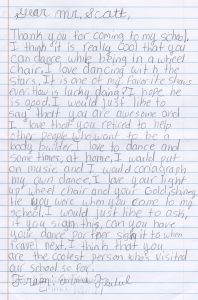 Dear Mr. Scott,
Thank you for coming to my school.
I thigh it is, really cool that you
can dance while being in a wheel
chair. I love dancing with the
stars. It is one of my favorite shows
ever. How is lucky doing? I hope he
is good. I would just like to
say that you are awesome and
I love that you retired to help
other people who want to be a
body builder. I love to dance and
some times, at home, I would put
on music and I would coriagraph
my own dance. I love your light
up wheel chair and your Gold shiney
tie you wore when you came to my
school. I would just like to ask,
if you sign this, can you have
your dance partner sign it to when
travel next. I think that you
are the coolest person who's visited
our school so far.
From: